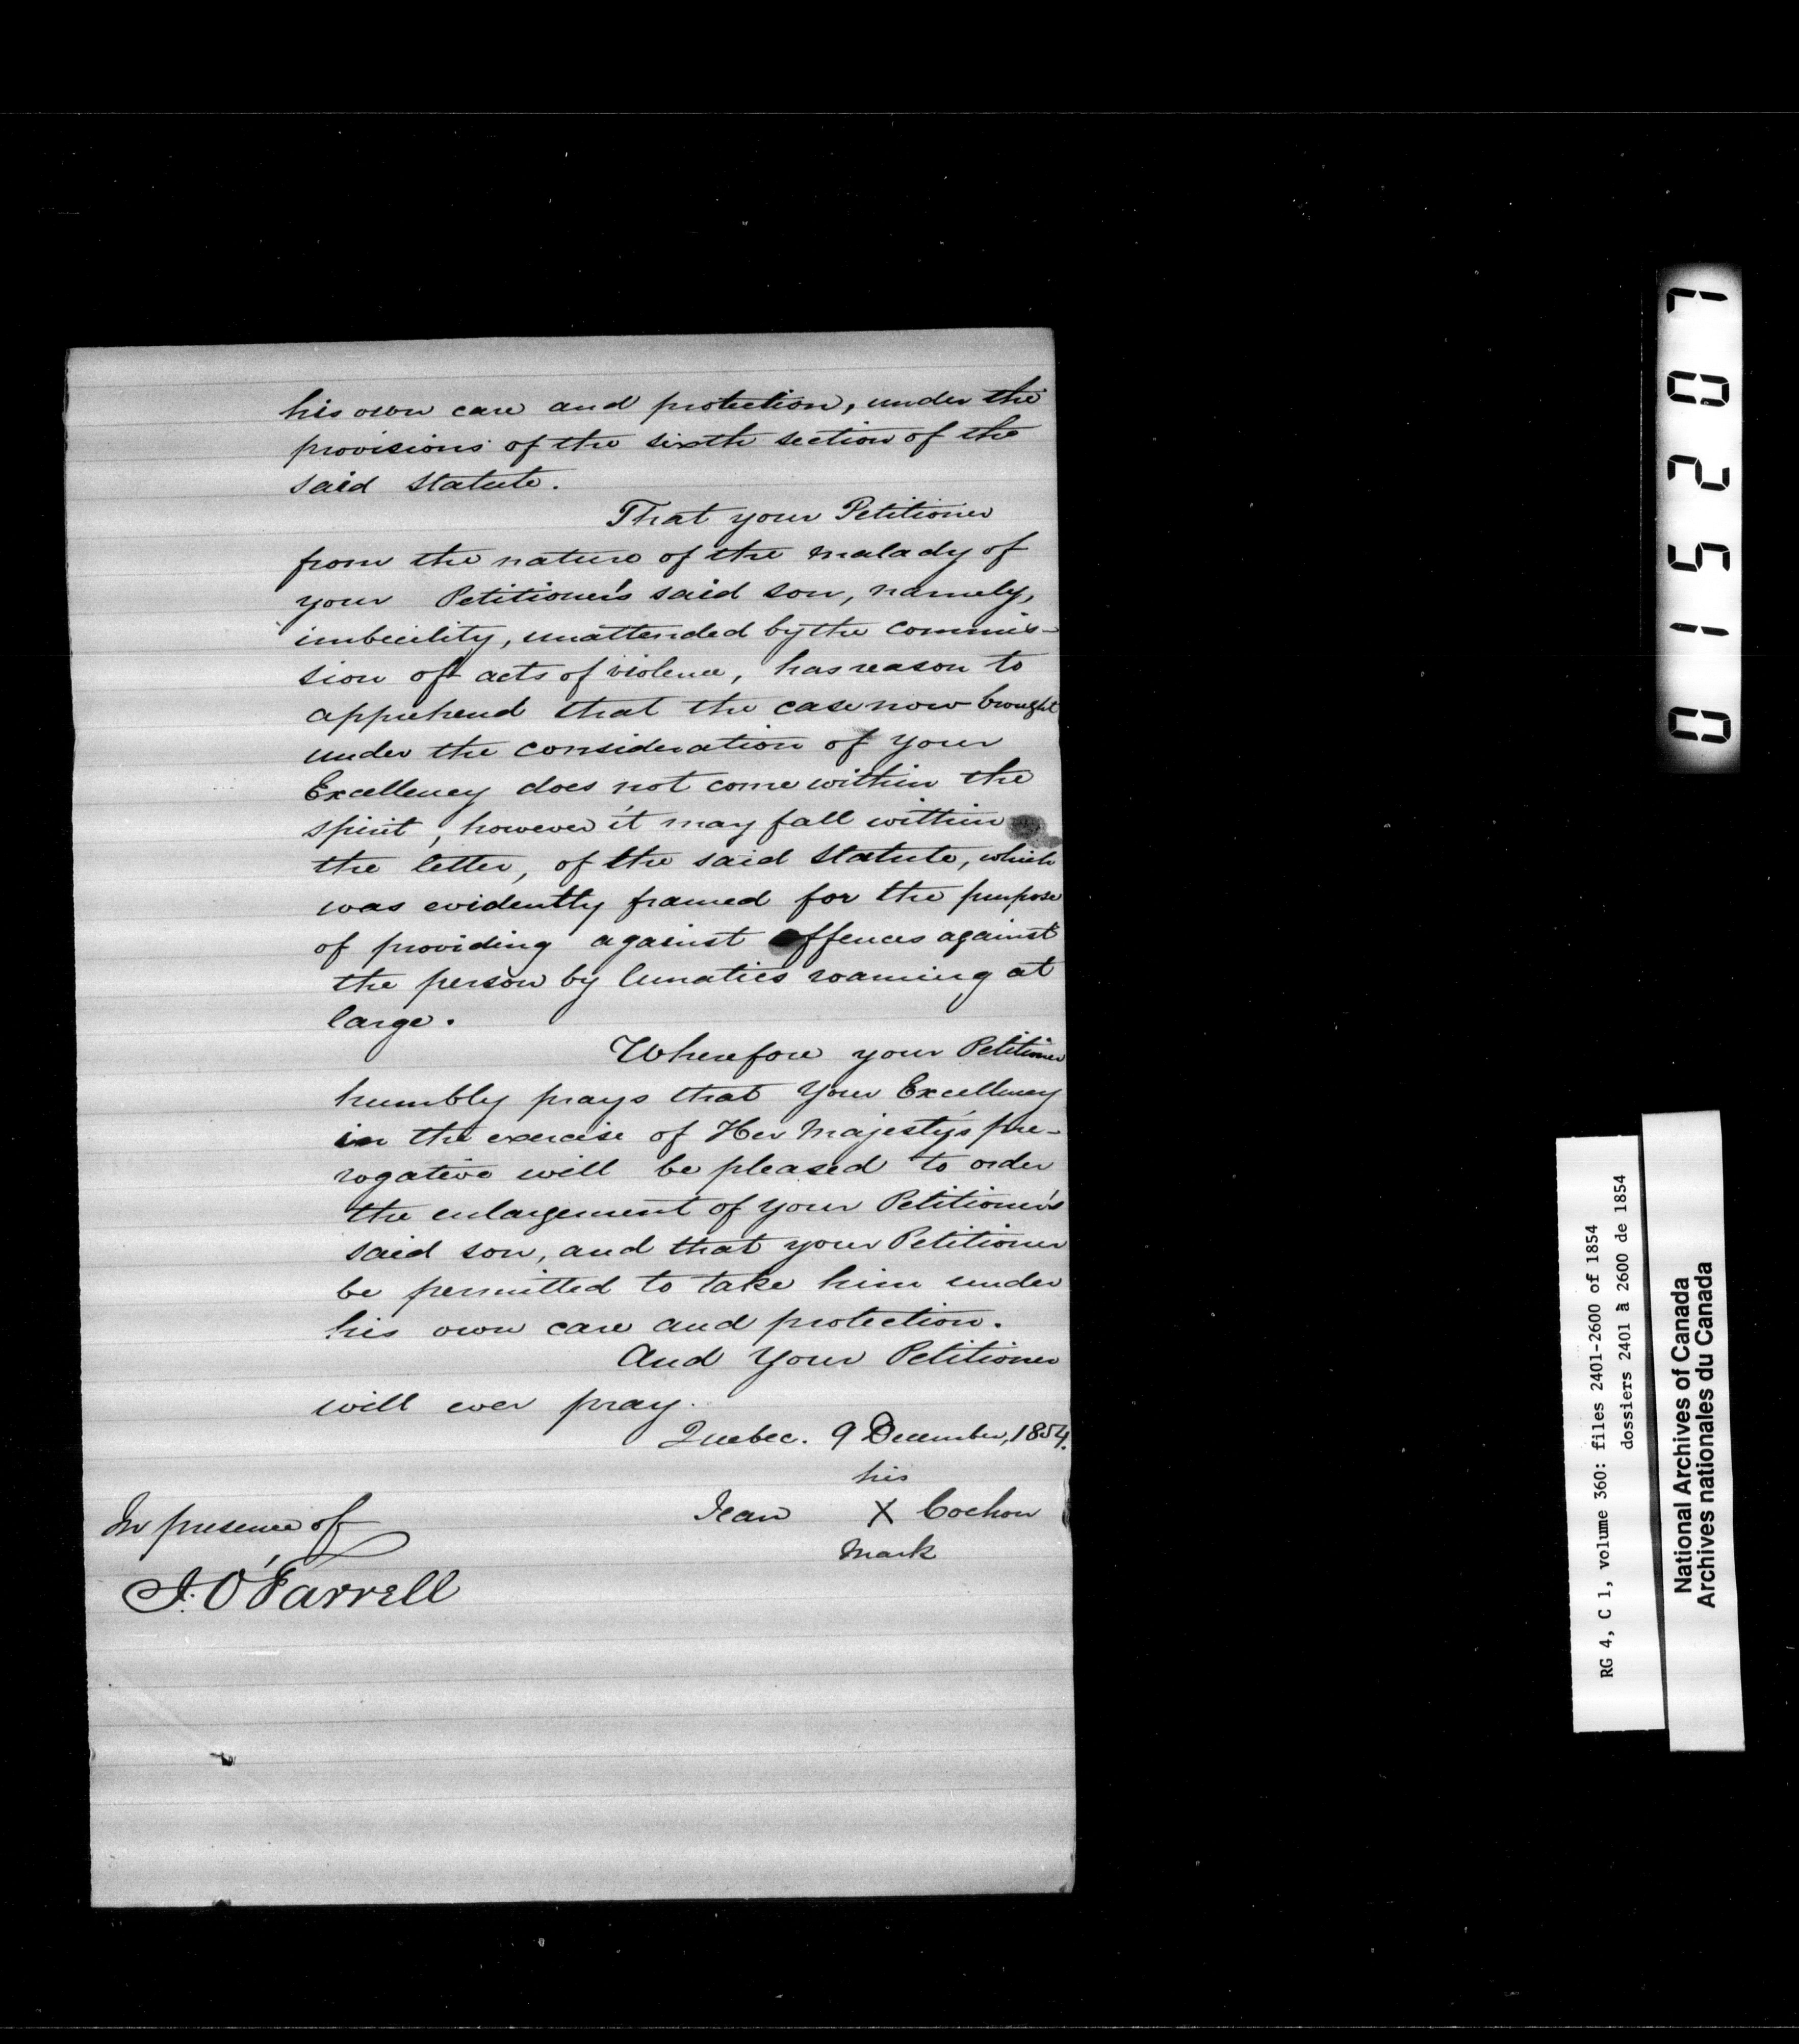 his own care and protection, under the
provisions of the sixth section of the
said statute.
That your Petitioner
from the nature of the malady of
your Petitioner's said son, namely,
imbecility, unattended by the commis-
sion of acts of violence, has reason to
apprehend that the case now brought
under the consideration of your
Excellency does not come within the
spirit, however it may fall within
the letter, of the said Statute, which
was evidently framed for the purpose
of providing against offences against
the person by lunatics roaming at
large.
Wherefore your Petitioner
humbly prays that Your Excellency
in the exercise of Her Majesty's pre-
rogative will be pleased to order
the enlargement of your Petitioner's
said son, and that your Petitioner
be permitted to take him under
his own care and protection.
And Your Petitioner
will ever pray.
Quebec. 9 December, 1854.
his
Jean X Cochon
mark
In presence of
J. O'Farrell
015207
RG 4, C 1, volume 360: files 2401-2600 of 1854
dossiers 2401 à 2600 de 1854
National Archives of Canada
Archives nationales du Canada